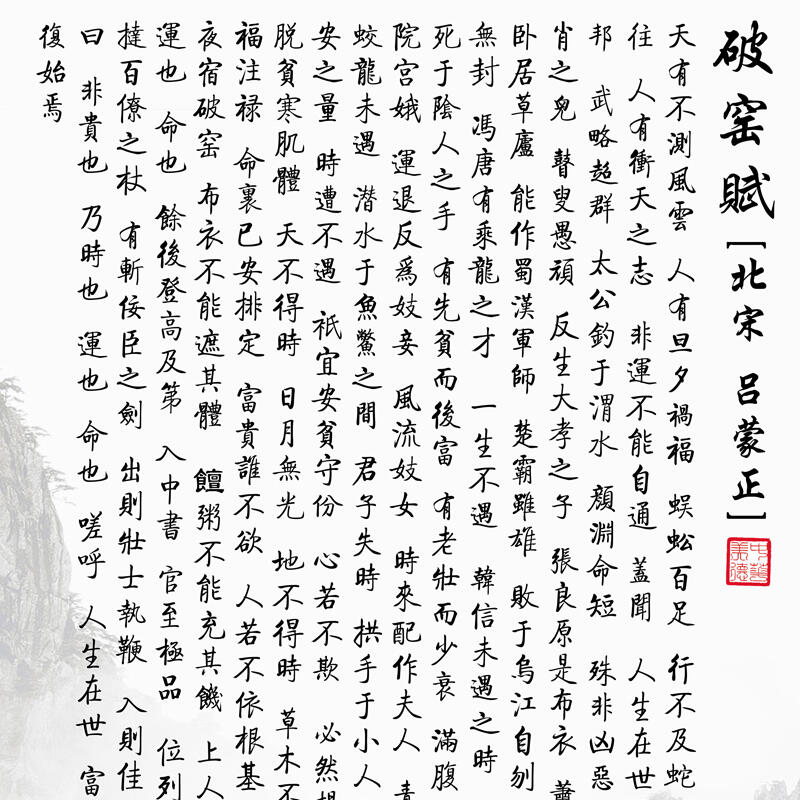 破窑賦[北宋 吕蒙正]
天有不測風雲 人有旦夕禍福 蜈蚣百足 行不及蛇
往 人有衝天之志 非運不能自通 蓋聞 人生在世
邦 武略超群 太公釣于渭水 顏淵命短 殊非凶惡
肖之兒 瞽叟愚頑 反生大孝之子 張良原是布衣 蕭
卧居草廬 能作蜀漢軍師 楚霸雖雄 敗于烏江自刎
無封 馮唐有乘龍之才 一生不遇 韓信未遇之時
死于陰人之手 有先貧而後富 有老壯而少衰 滿腹
院宫娥 運退反爲妓妾 風流妓女 時來配作夫人
蛟龍未遇 潛水于魚鱉之間 君子失時 拱手于小人
安之量 時遭不遇 祇宜安貧守份 心若不欺 必然
脱貧寒肌體 天不得時 日月無光 地不得時 草木不
福注禄 命裏已安排定 富貴誰不欲 人若不依根基
夜宿破窑 布衣不能遮其體 饘粥不能充其饑 上人
運也 命也 餘後登高及第 入中書 官至極品 位列
撻百僚之杖 有斬佞臣之劍 出則壯士執鞭 入則佳
曰 非貴也 乃時也 運也 命也 嗟呼 人生在世 富
復始焉